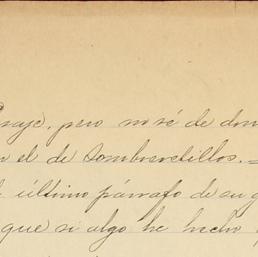 pero no sé de
el de Sombreretillos.
último párrafo de su
que si algo he hecho